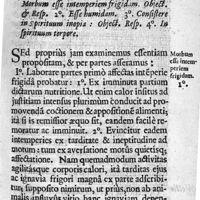 Morbum esse intemperiem frigidam. Object.
& Resp. 2º. Esse humidam. 3º. Consistere
in spirituum inopia: Object. Resp. 4º. In
spirituum torpore.
SEd propriùs jam examinemus essentiam
propositam, & per partes asseramus:
Morbum
esse intem-
periem
frigidam.
1º.
1º. Laborare partes primò affectas intêperie
frigidâ probatur: 1º. Ex imminuta partium
dictarum nutritione. Ut enim calor insitus ad
justitiam intensus plurimùm conducit ad pro-
movendâ coctionem & appositionê alimenti;
ita si is remissior æquo sit, eandem facilè red-
moratur & imminuit. 2º. Evincitur eadem
intemperies ex tarditate & ineptitudine ad
motum: ex aversatione motûs quietisq;
affectatione. Nam quemadmodum activitas
agilitasque corporis calori, ità tarditas ejus
ac ignavia frigori magnâ ex parte adscribi-
tur. supposito nimirum, ut priùs, non ab ani-
malis anhuvis vitio hanc ignaviam, depen-